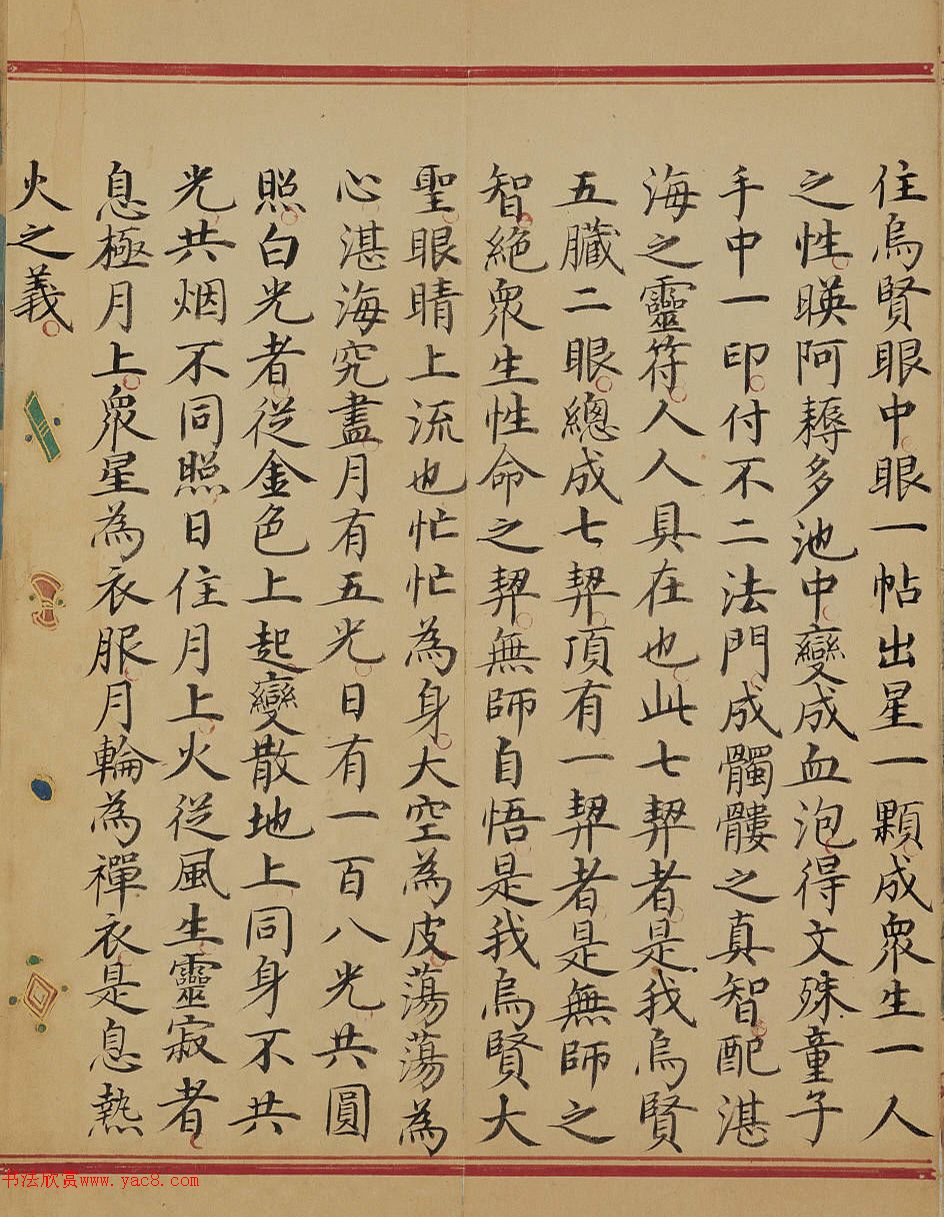 住烏賢眼中眼一帖出星一顆成衆生一人
之性暎阿耨多池中變成血泡得文殊童子
手中一印付不二法門成髑髏之真智配湛
海之靈符人人具在也此七契者是我烏賢
五臟二眼總成七契頂有一契者是無師之
智絕衆生性命之契無師自悟是我烏賢大
聖眼睛上流也忙忙為身大空為皮蕩蕩為
心湛海究盡月有五光日有一百八光共圓
照白光者從金色上起變散地上同身不共
光共烟不同照日住月上火從風生靈寂者
息極月上衆星為衣服月輪為禪衣是息熱
火之義
书法欣赏www.yac8.com